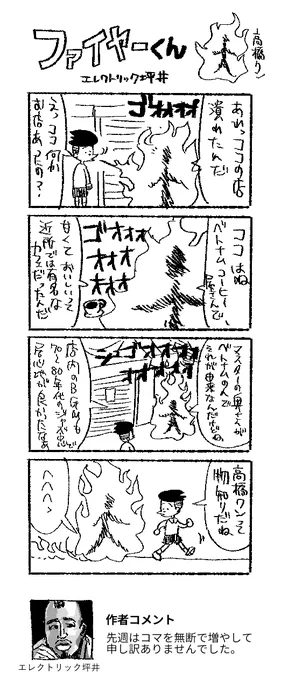 ファイヤーくん
エレクトリック坪井
高橋クン
あれっココの店
潰れたんだ
ゴオオオオ
えっココ何か
お店あったの?
ココはね
ベトナムコーヒー
屋さんで、
ゴオオオ
オオオ
オオオ
甘くておいしいって
近所では有名な
カフェだったんだ
マスターの奥さんが
ベトナムの人で
それが由来なんだけどね、
ゴオオオオ
オオオオ
店内のBGMも
70〜80年代のジャズ中心で
居心地が良かったなあ
高橋クンって
物知りだね
へへへっ
作者コメント
先週はコマを無断で増やして
申し訳ありませんでした。
エレクトリック坪井